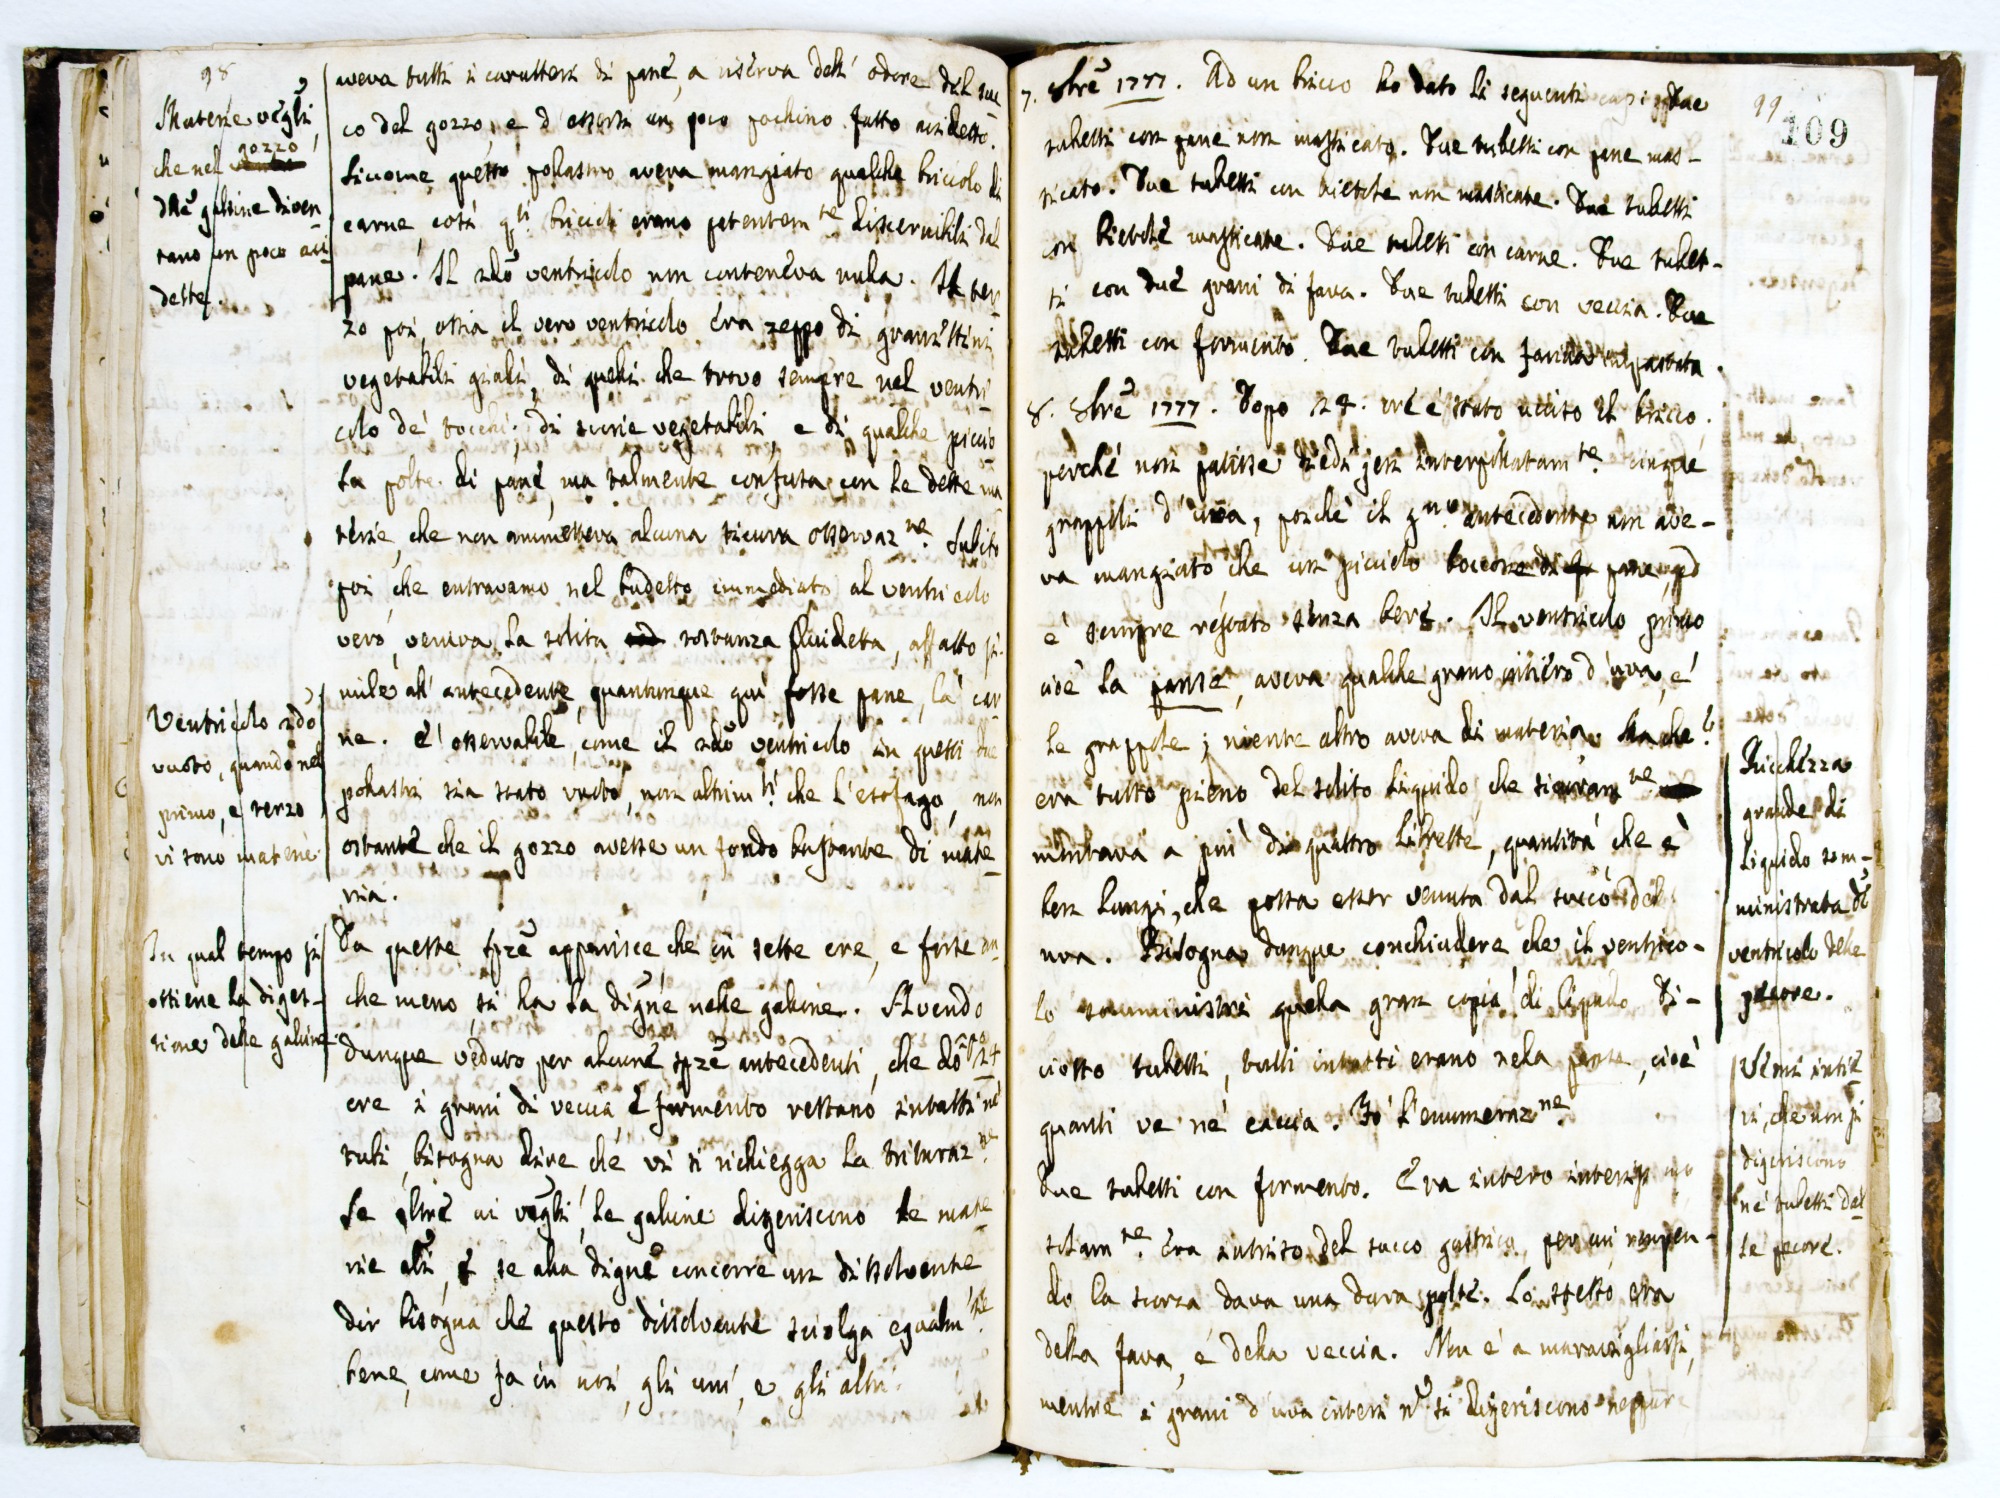 98
Materie vegli,
che nel gozzo
dlle galline diven
tano un poco aci
dette.
aveva tutti i caratteri di pane, a riserva dell' odore del suc
co del gozzo, e d' essersi un poco pochino fatto acidetto.
Siccome questo pollastro aveva mangiato qualche bricciolo di
carne, così qti briccioli erano patentemte discernibili dal
pane. Il 2do ventricolo non conteneva nulla. Il ter
zo poi, ossia il vero ventricolo era zeppo di granellini
vegetabili gialli, di quelli che trovo sempre nel ventri
colo de' tocchi, di scorie vegetabili, e di qualche piccio
la polte di pane, ma talmente confusa con le dette ma
terie, che non ammetteva alcuna sicura osservazne. Subito
poi che entravamo nel budello immediato al ventricolo
vero, veniva la solita sostanza fluidetta, affatto si
mile all' antecedente, quantunque qui fosse pane, là car
ne. È osservabile, come il 2do ventricolo in questi due
pollastri sia stato vuoto, non altrimti che l'esofago, non
ostante che il gozzo avesse un fondo bastante di mate
ria.
Ventricolo 2do
vuoto, quando nel
primo, e terzo
vi sono materie.
In qual tempo si
ottiene la diges-
tione delle galline
Da queste spze apparisce che in sette ore, e forse an
che meno, si ha la digne nelle galline. Avendo
dunque veduto per alcune spze antecedenti, che do 24
ore i grani di veccia, e formento restano intatti ne'
tubi, bisogna dire che vi si richiegga la triturazne.
Se oltre ai vegli, le galline digeriscono le mate
rie ali, e se alla digne concorre un dissolvente
dir bisogna che questo dissolvente sciolga egualmte
bene, come fa in noi, gli uni, e gli altri.
99
109
7. 8bre 1777. Ad un bricco ho dato li seguenti capi Due
tubetti con pane non masticato. Due tubetti con pane mas-
ticato. Due tubetti con bietole non masticate. Due tubetti
con bietole masticate. Due tubetti con carne. Due tubet-
ti con due grani di fava. Due tubetti con veccia. Due
tubetti con formento. Due tubetti con farina impastata.
8. 8bre 1777. Dopo 24. ore è stato ucciso il bricco.
perché non patisse diedi jeri interpollatamte cinque
grappoli d' uva, poiché il gno antecedente non ave-
va mangiato che un picciolo boccone di pane, ed
è sempre restato senza bere. Il ventricolo primo
cioè la panse, aveva qualche grano intiero d' uva, e
le grappole; niente altro aveva di materia. Ma che
era tutto pieno del solito liquido, che sicuramte
montava a più di quattro librette, quantità che è
ben lungi, che possa esser venuta dal succo del
uva. Bisogna dunque conchiudere che il ventrico-
lo somministri quella gran copia di liquido. Di-
ciotto tubetti, tutti intatti erano nella pansa, cioè
quanti ve ne' caccia. Fo l'enumerazne.
Due tubetti con formento. Era intero
solamte era intriso del succo gastrico, per cui rompen-
do la scorza dava una dura polte. Lo stesso era
della fava, e della veccia. Non è a maravigliarsi,
mentre i grani d' uva interi n si digeriscono neppure
Ricchezza
grande di
liquido som-
ministrata dl
ventricolo delle
pecore.
Semi intie
ri, che non si
digeriscono
ne' tubetti dal
le pecore.